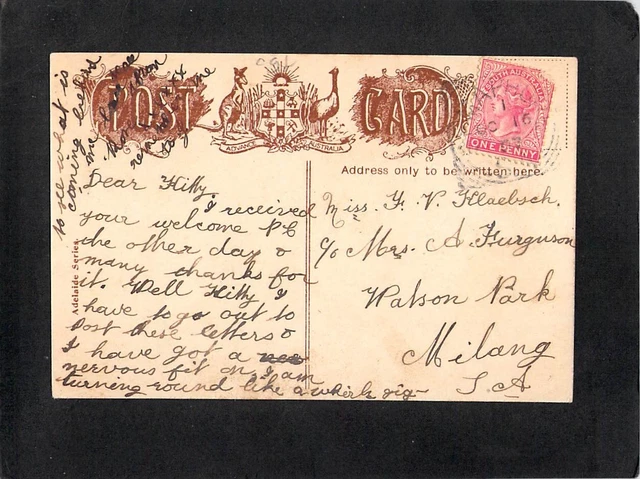 POST CARD
ADVANCE AUSTRALIA
SOUTH AUSTRALIA
ONE PENNY
Address only to be written here.
Adelaide Series
Dear Kitty.
I received
your welcome PC
the other day &
many thanks for
it. Well Kitty I
have to go out to
Post these letters &
I have got a
nervous fit on, I am
turning round like a whirly gig
to see what is
coming behind
me
to me
Miss. F. V. Klaebsch.
c/o Mrs. A. Furguson
Watson Park
Milang
S. A